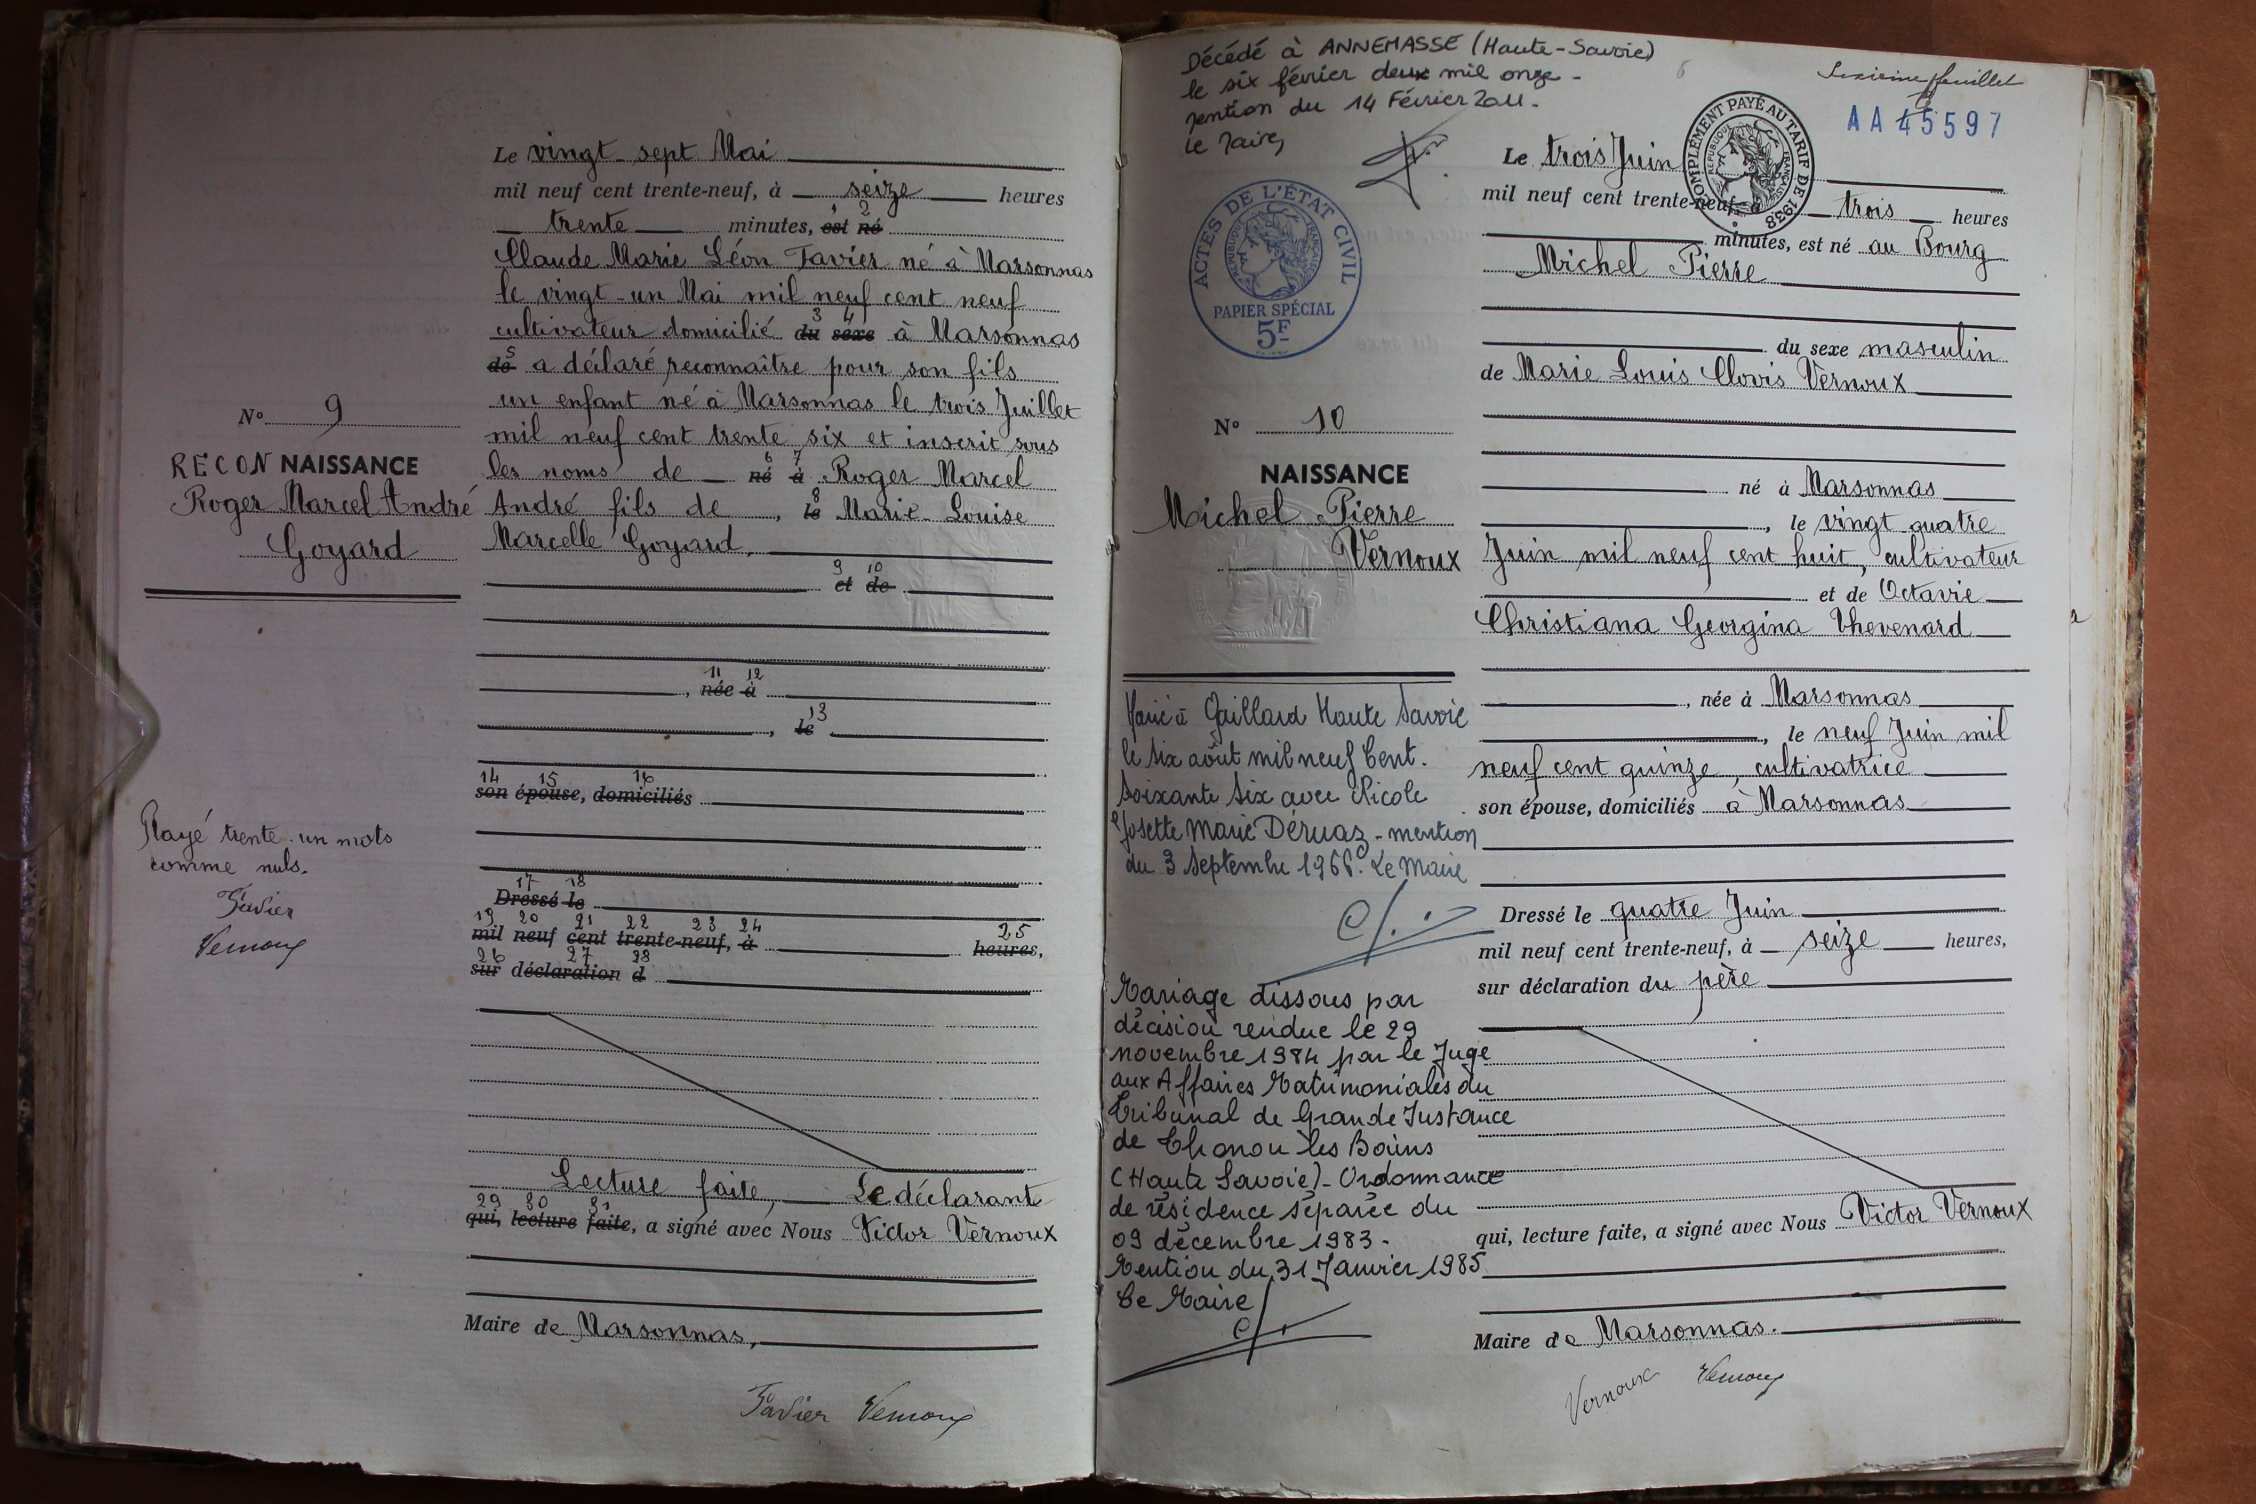 Le vingt-sept Mai
mil neuf cent trente-neuf, à seize heures
trente minutes, est né
1 2
Claude Marie Léon Favier né à Marsonnas
le vingt-un Mai mil neuf cent neuf
cultivateur domicilié du sexe à Marsonnas
3 4
de a déclaré reconnaître pour son fils
5
un enfant né à Marsonnas le trois Juillet
mil neuf cent trente six et inscrit sous
les noms de né à Roger Marcel
6 7
André fils de, le Marie-Louise
8
Marcelle Goyard,
et de
9 10
, née à
11 12
, le
13
son épouse, domiciliés
14 15 16
Dressé le
17 18
mil neuf cent trente-neuf, à heures,
19 20 21 22 23 24 25
sur déclaration d
26 27 28
Lecture faite, Le déclarant
qui, lecture faite, a signé avec Nous Victor Vernoux
29 30 31
Maire de Marsonnas,
Favier Vernoux
N° 9
RECONNAISSANCE
Roger Marcel André
Goyard
Rayé trente-un mots
comme nuls.
Favier
Vernoux
Décédé à ANNEMASSE (Haute-Savoie)
le six février deux mil onze -
mention du 14 Février 2011.
Le Maire,
6
Sixième feuillet
AA 45597
COMPLÉMENT PAYÉ AU TARIF DE 1938
RÉPUBLIQUE FRANÇAISE
ACTES DE L'ÉTAT CIVIL
RÉPUBLIQUE FRANÇAISE
PAPIER SPÉCIAL
5F
N° 10
NAISSANCE
Michel Pierre
Vernoux
Marié à Gaillard Haute Savoie
le six août mil neuf Cent.
Soixante Six avec Nicole
Josette Marie Déruaz - mention
du 3 Septembre 1966. Le Maire
Mariage dissous par
décision rendue le 29
novembre 1984 par le Juge
aux Affaires Matrimoniales du
Tribunal de Grande Instance
de Thonon les Bains
(Haute Savoie) - Ordonnance
de résidence séparée du
09 décembre 1983 -
Mention du 31 Janvier 1985
Le Maire
Le trois Juin
mil neuf cent trente-neuf, à trois heures
minutes, est né au Bourg
Michel Pierre
du sexe masculin
de Marie Louis Clovis Vernoux
né à Marsonnas
, le vingt quatre
Juin mil neuf cent huit, cultivateur
et de Octavie
Christiana Georgina Thevenard
, née à Marsonnas
, le neuf Juin mil
neuf cent quinze, cultivatrice
son épouse, domiciliés à Marsonnas
Dressé le quatre Juin
mil neuf cent trente-neuf, à seize heures,
sur déclaration du père
qui, lecture faite, a signé avec Nous Victor Vernoux
Maire de Marsonnas.
Vernoux Vernoux